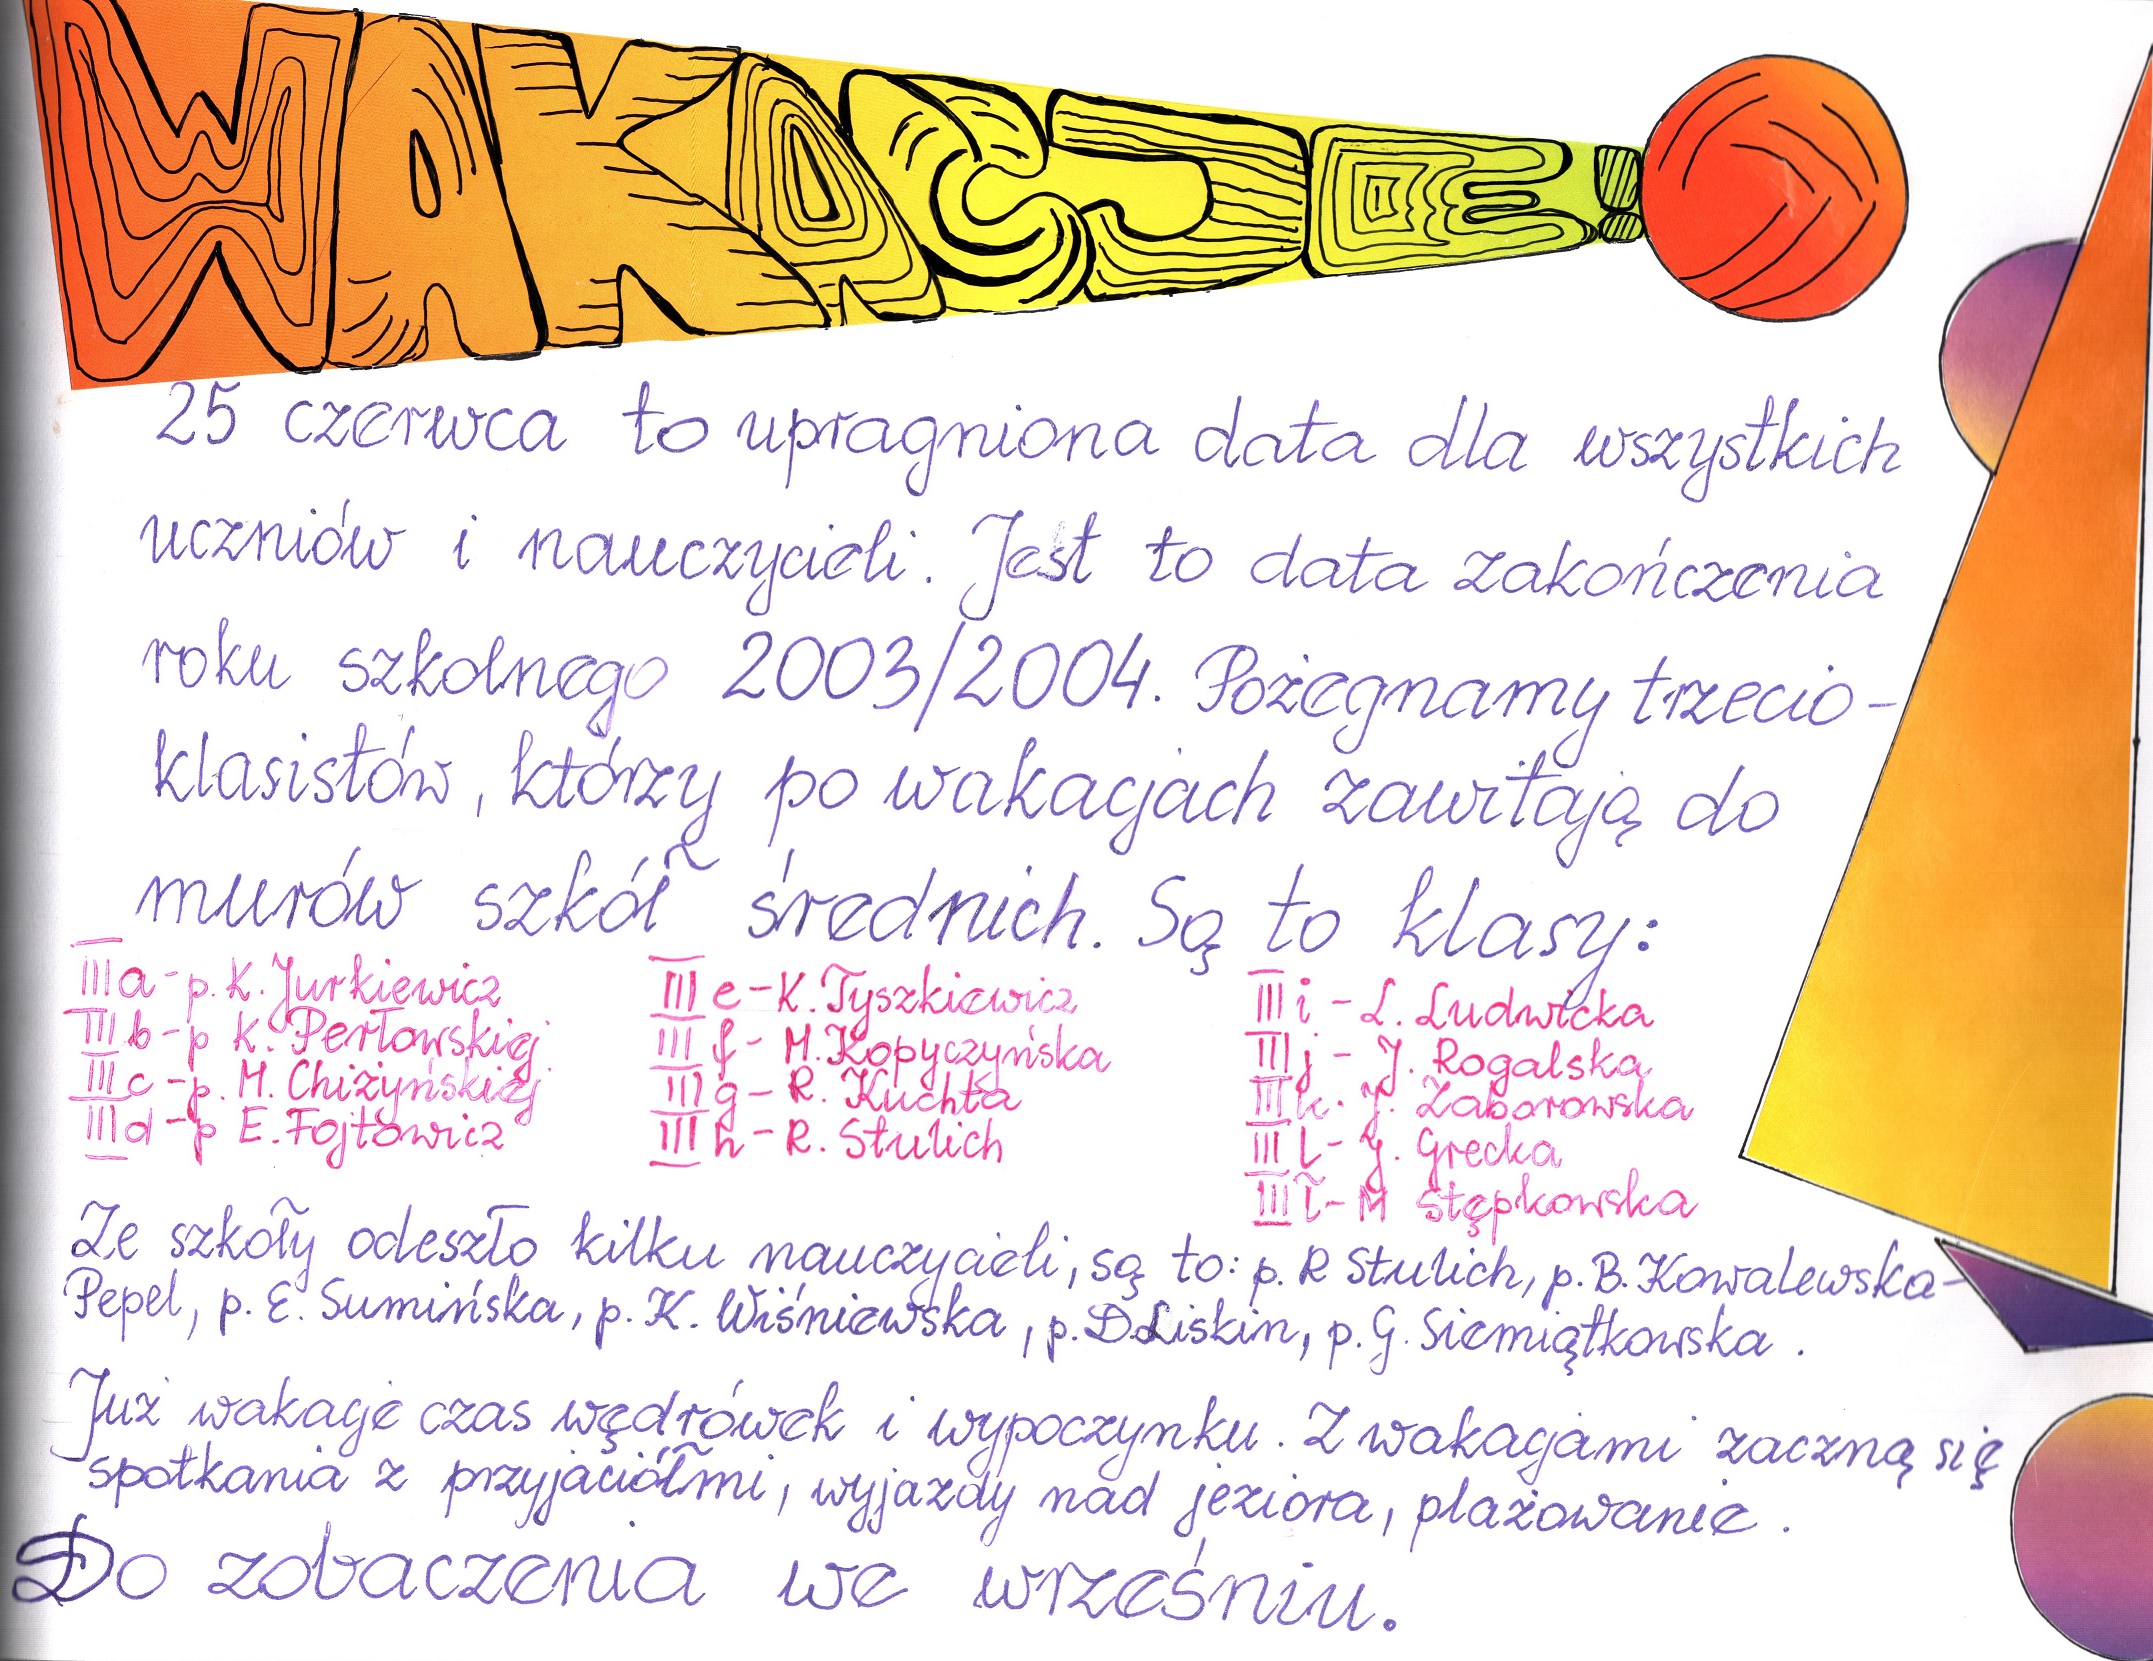 WAKACJE!
25 czerwca to upragniona data dla wszystkich
uczniów i nauczycieli. Jest to data zakończenia
roku szkolnego 2003/2004. Pożegnamy trzecio-
klasistów, którzy po wakacjach zawitają do
murów szkół średnich. Są to klasy:
III a - p. K. Jurkiewicz
III b - p K. Perłowskiej
III c - p. M. Chiżyńskiej
III d - p E. Fojtowicz
III e - K. Tyszkiewicz
III f - M. Kopyczyńska
III g - R. Kuchta
III h - R. Stulich
III i - L. Ludwicka
III j - J. Rogalska
III k. J. Zaborowska
III l - J. Grecka
III ł - M Stępkowska
Ze szkoły odeszło kilku nauczycieli, są to: p. R Stulich, p. B. Kowalewska-
Pepel, p. E. Sumińska, p. K. Wiśniewska, p. D. Liskin, p. G. Siemiątkowska.
Już wakacje czas wędrówek i wypoczynku. Z wakacjami zaczną się
spotkania z przyjaciółmi, wyjazdy nad jeziora, plażowanie.
Do zobaczenia we wrześniu.